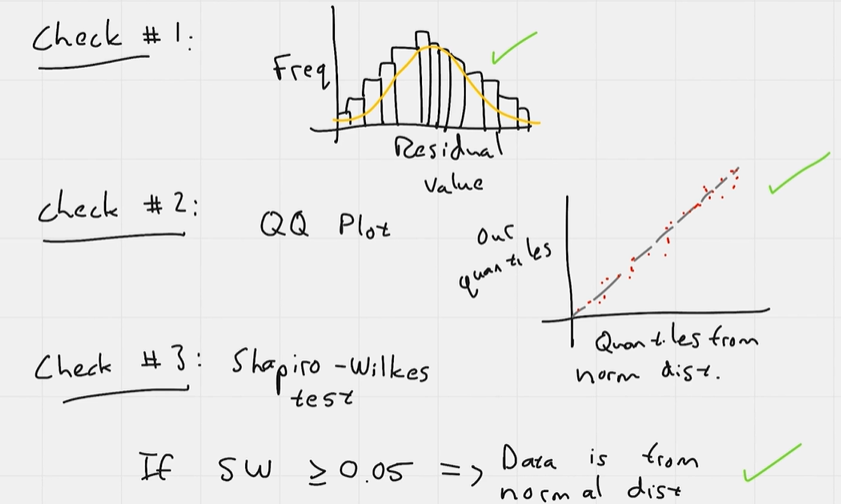 Check #1:
Freq
Residual
value
Check #2:
QQ Plot
Our
quantiles
Quantiles from
norm dist.
Check #3: Shapiro-Wilkes
test
If SW ≥ 0.05 => Data is from
normal dist